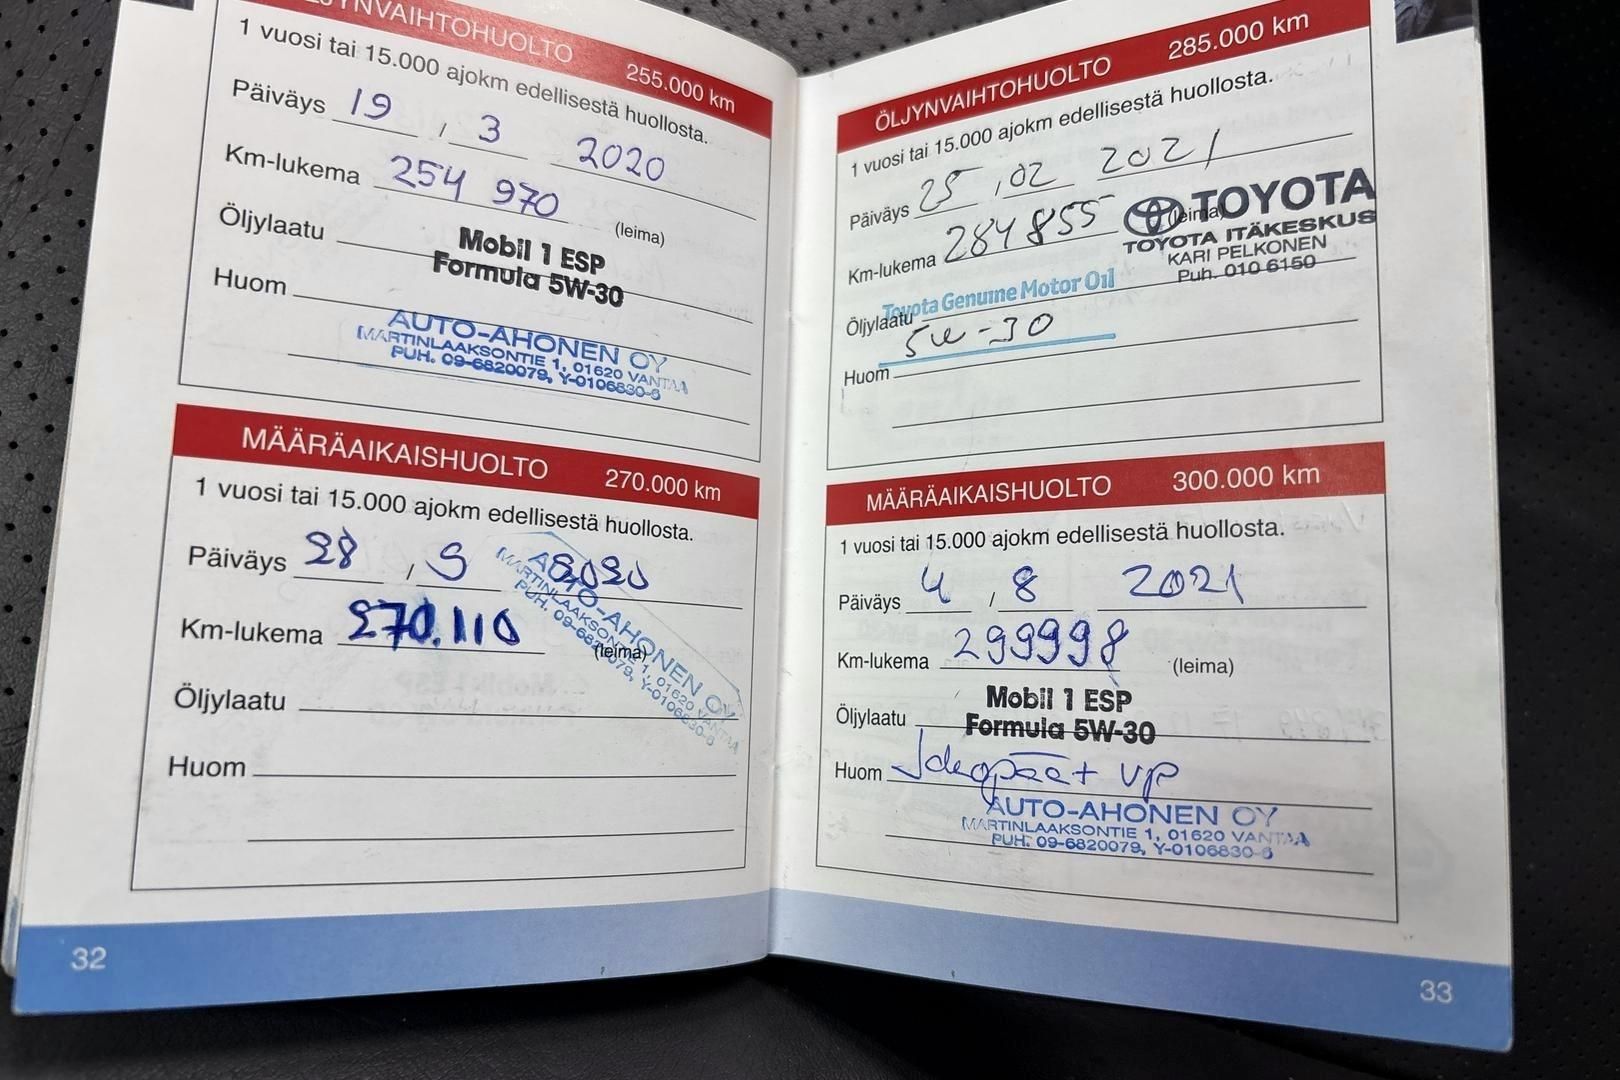 ÖLJYNVAIHTOHUOLTO 255.000 km
1 vuosi tai 15.000 ajokm edellisestä huollosta.
Päiväys 19 / 3 2020
Km-lukema 254 970
(leima)
Öljylaatu Mobil 1 ESP
Formula 5W-30
Huom
AUTO-AHONEN OY
MARTINLAAKSONTIE 1, 01620 VANTAA
PUH. 09-6820079, Y-0106830-6
MÄÄRÄAIKAISHUOLTO 270.000 km
1 vuosi tai 15.000 ajokm edellisestä huollosta.
Päiväys 28 / 9 2020
Km-lukema 270.110
(leima)
AUTO-AHONEN OY
MARTINLAAKSONTIE 1, 01620 VANTAA
PUH. 09-6820079, Y-0106830-6
Öljylaatu
Huom
32
ÖLJYNVAIHTOHUOLTO 285.000 km
1 vuosi tai 15.000 ajokm edellisestä huollosta.
Päiväys 25 / 02 2021
Km-lukema 284855
(leima)
TOYOTA
TOYOTA ITÄKESKUS
KARI PELKONEN
Puh. 010 6150
Toyota Genuine Motor Oil
Öljylaatu 5W-30
Huom
MÄÄRÄAIKAISHUOLTO 300.000 km
1 vuosi tai 15.000 ajokm edellisestä huollosta.
Päiväys 4 / 8 2021
Km-lukema 299998 (leima)
Öljylaatu Mobil 1 ESP
Formula 5W-30
Huom vp
AUTO-AHONEN OY
MARTINLAAKSONTIE 1, 01620 VANTAA
PUH. 09-6820079, Y-0106830-6
33